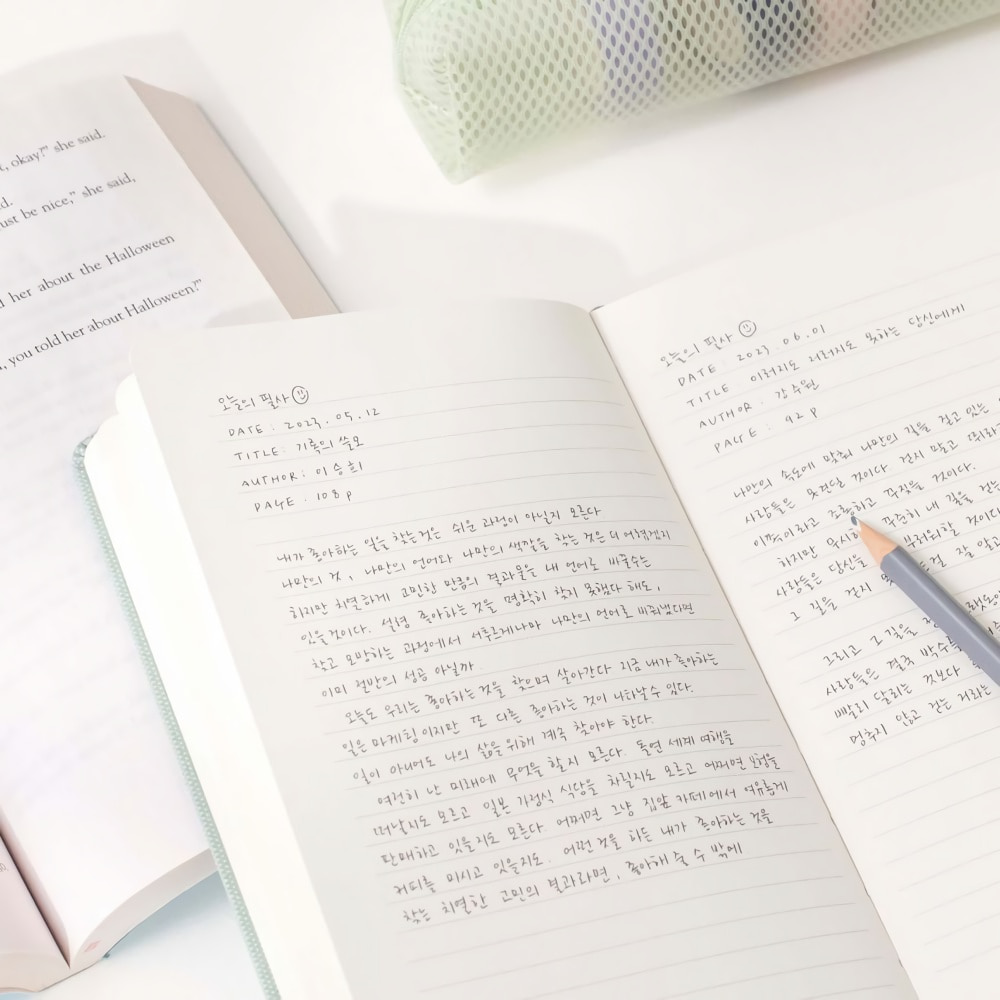 , okay?" she said.
d.
ust be nice," she said,
d her about the Halloween
, you told her about Halloween?"
오늘의 필사
DATE : 2023. 05. 12
TITLE : 기록의 쓸모
AUTHOR : 이승희
PAGE . 108 p
내가 좋아하는 일을 찾는것은 쉬운 과정이 아닐지 모른다
나만의 것, 나만의 언어와 나만의 색깔을 찾는 것은 더 어렵겠지
하지만 치열하게 고민한 만큼의 결과물을 내 언어로 바꿀수는
있을것이다. 설령 좋아하는 것을 명확히 찾지 못했다 해도,
찾고 모방하는 과정에서 서투르게나마 나만의 언어로 바뀌냈다면
이미 절반의 성공 아닐까.
오늘도 우리는 좋아하는 것을 찾으며 살아간다 지금 내가 좋아하는
일은 마케팅이지만 또 다른 좋아하는 것이 나타날수 있다.
일이 아니어도 나의 삶을 위해 계속 찾아야 한다.
여전히 난 미래에 무엇을 할지 모른다. 돌연 세계 여행을
떠날지도 모르고 일본 가정식 식당을 차릴지도 모르고 어쩌면 보험을
판매하고 있을지도 모른다. 어쩌면 그냥 집앞 카페에서 여유롭게
커피를 마시고 있을지도. 어떤것을 하든 내가 좋아하는 것을
찾는 치열한 고민의 결과라면, 좋아해 줄 수 밖에
오늘의 필사
DATE 2023. 06. 01
TITLE 이러지도 저러지도 못하는 당신에게
AUTHOR . 강주원
PAGE : 92 p
나만의 속도에 맞춰 나만의 길을 걷고 있는
사람들은 못견딜 것이다 걷지 말고 뛰라
이쪽이라고 조롱하고 꾸짖을 것이다.
하지만 꾸준히 내 길을 걷는
사람들은 당신을 부러워할 것이다
그 길을 걷지 잘 알고
그리고 그 길을
사람들은 결국 박수를
빨리 달리는 것보다
멈추지 않고 걷는 거라는